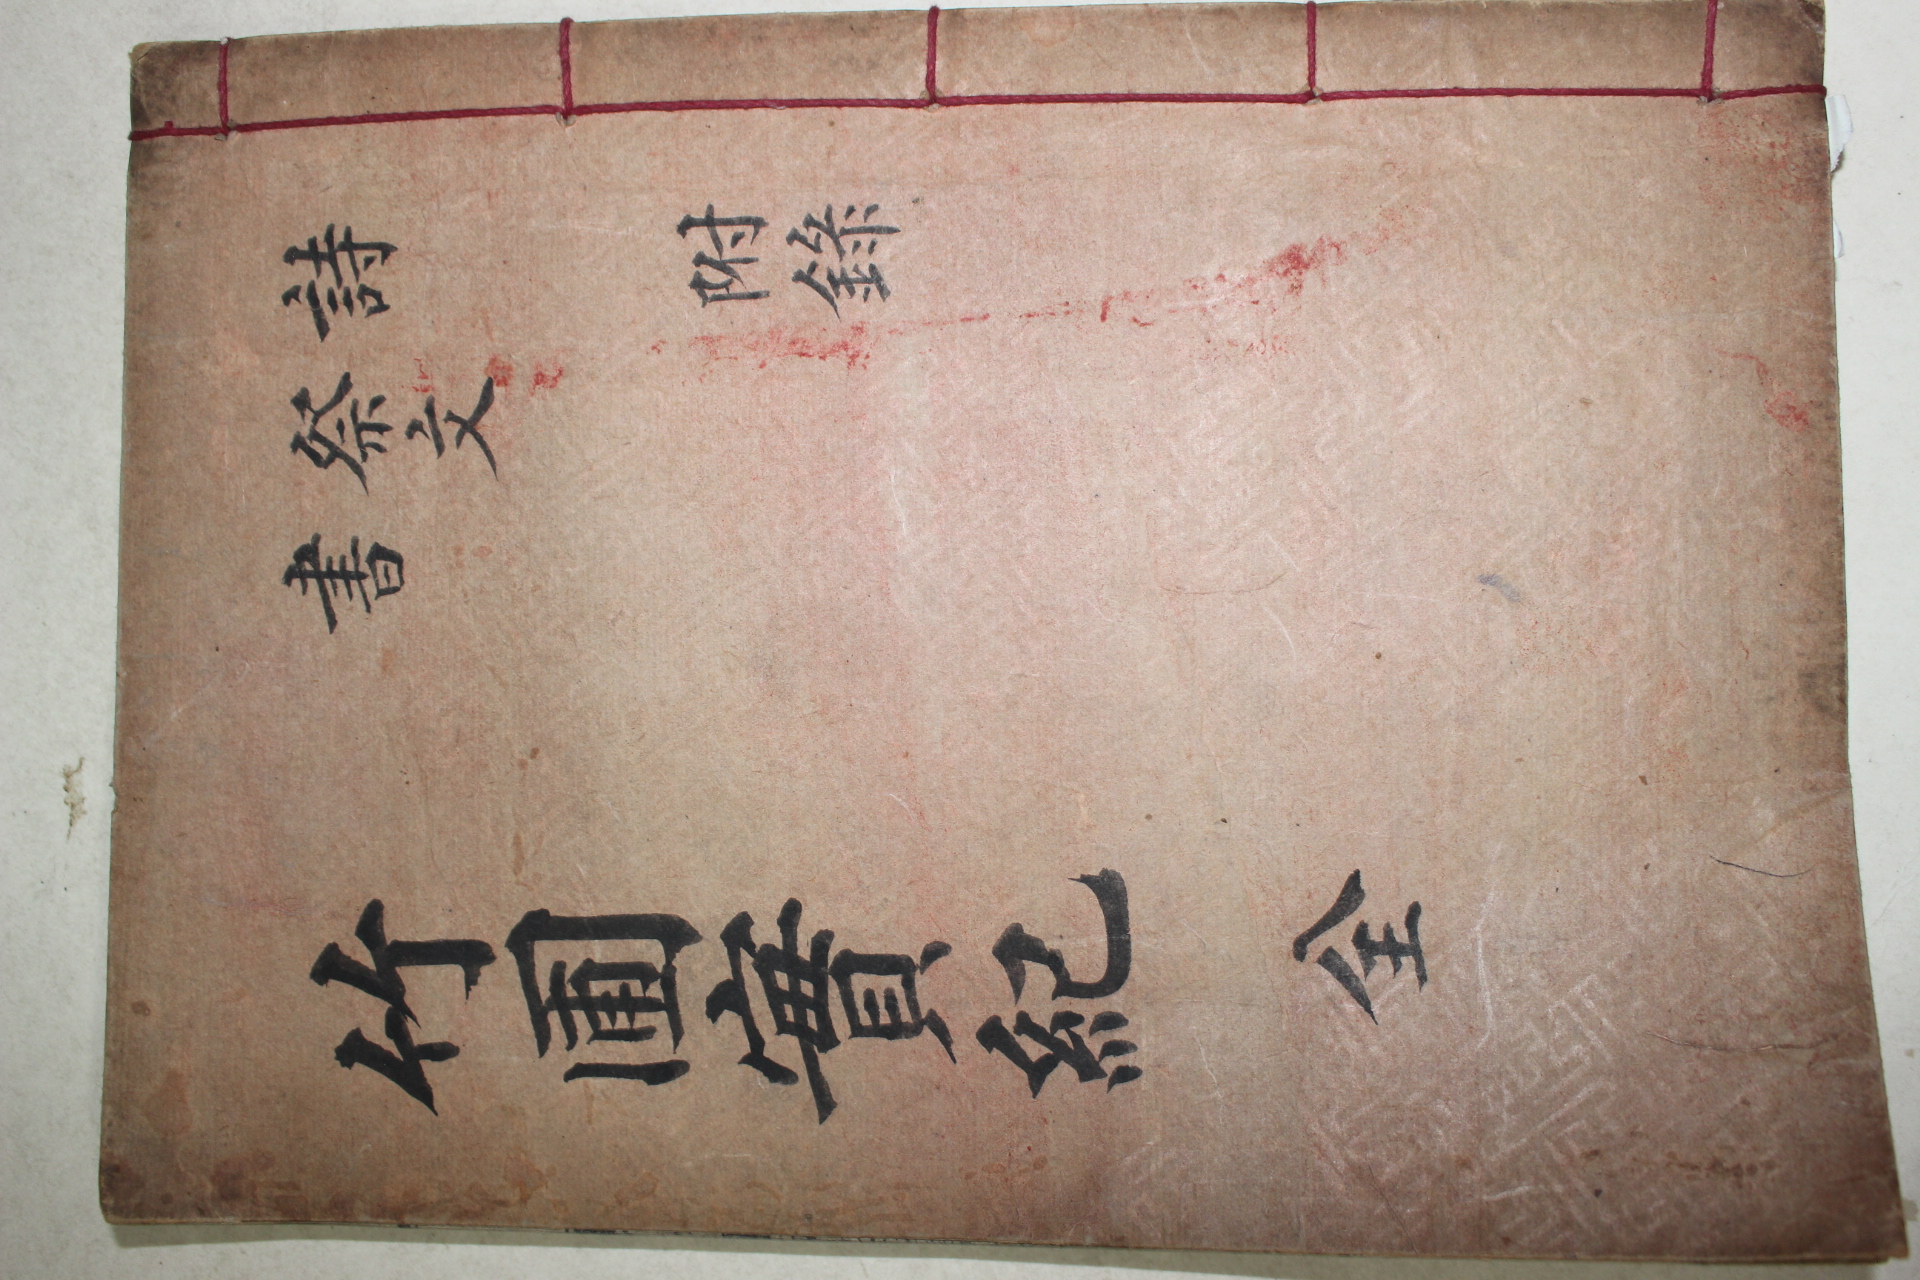 詩
附錄
祭文
書
竹圃實紀 全